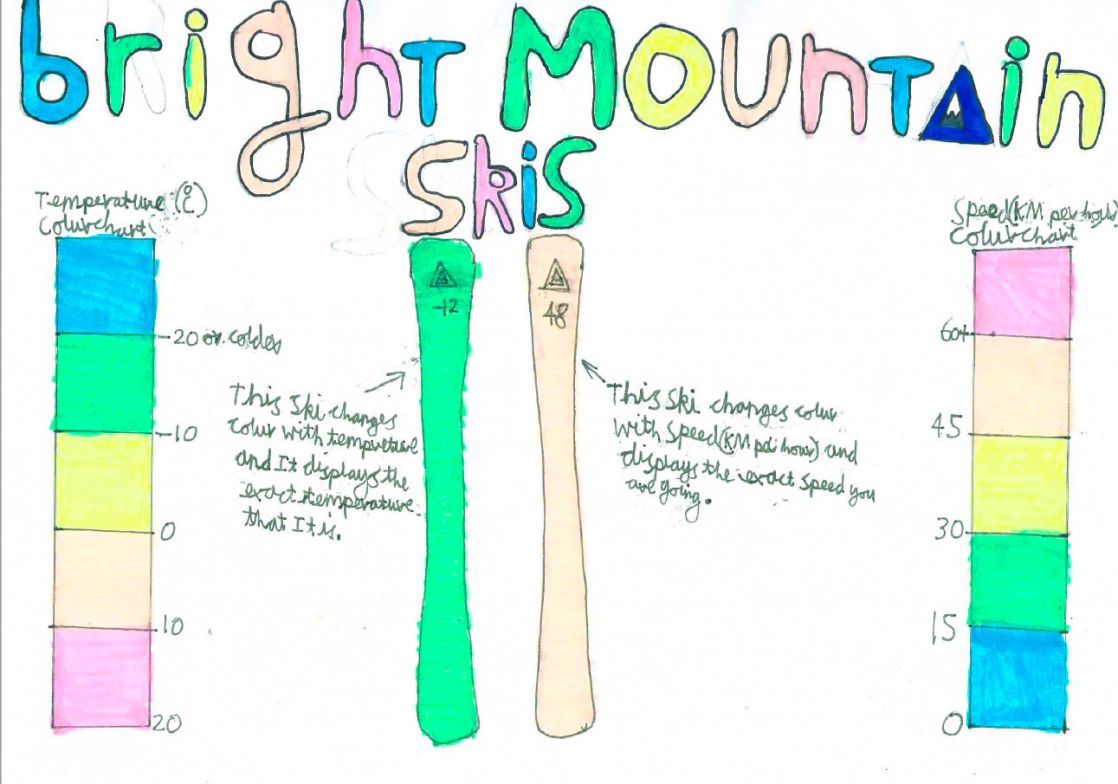 bright MOUNTAin
SkiS
Temperature (°C)
Colur chart
-20 or colder
-10
0
10
20
-12
48
This Ski changes
colur with tempreture
and It displays the
exact temperature
that It is.
This Ski changes colur
with Speed (KM per hour) and
displays the exact Speed you
are going.
Speed (KM per hour)
Colur chart
60+
45
30
15
0